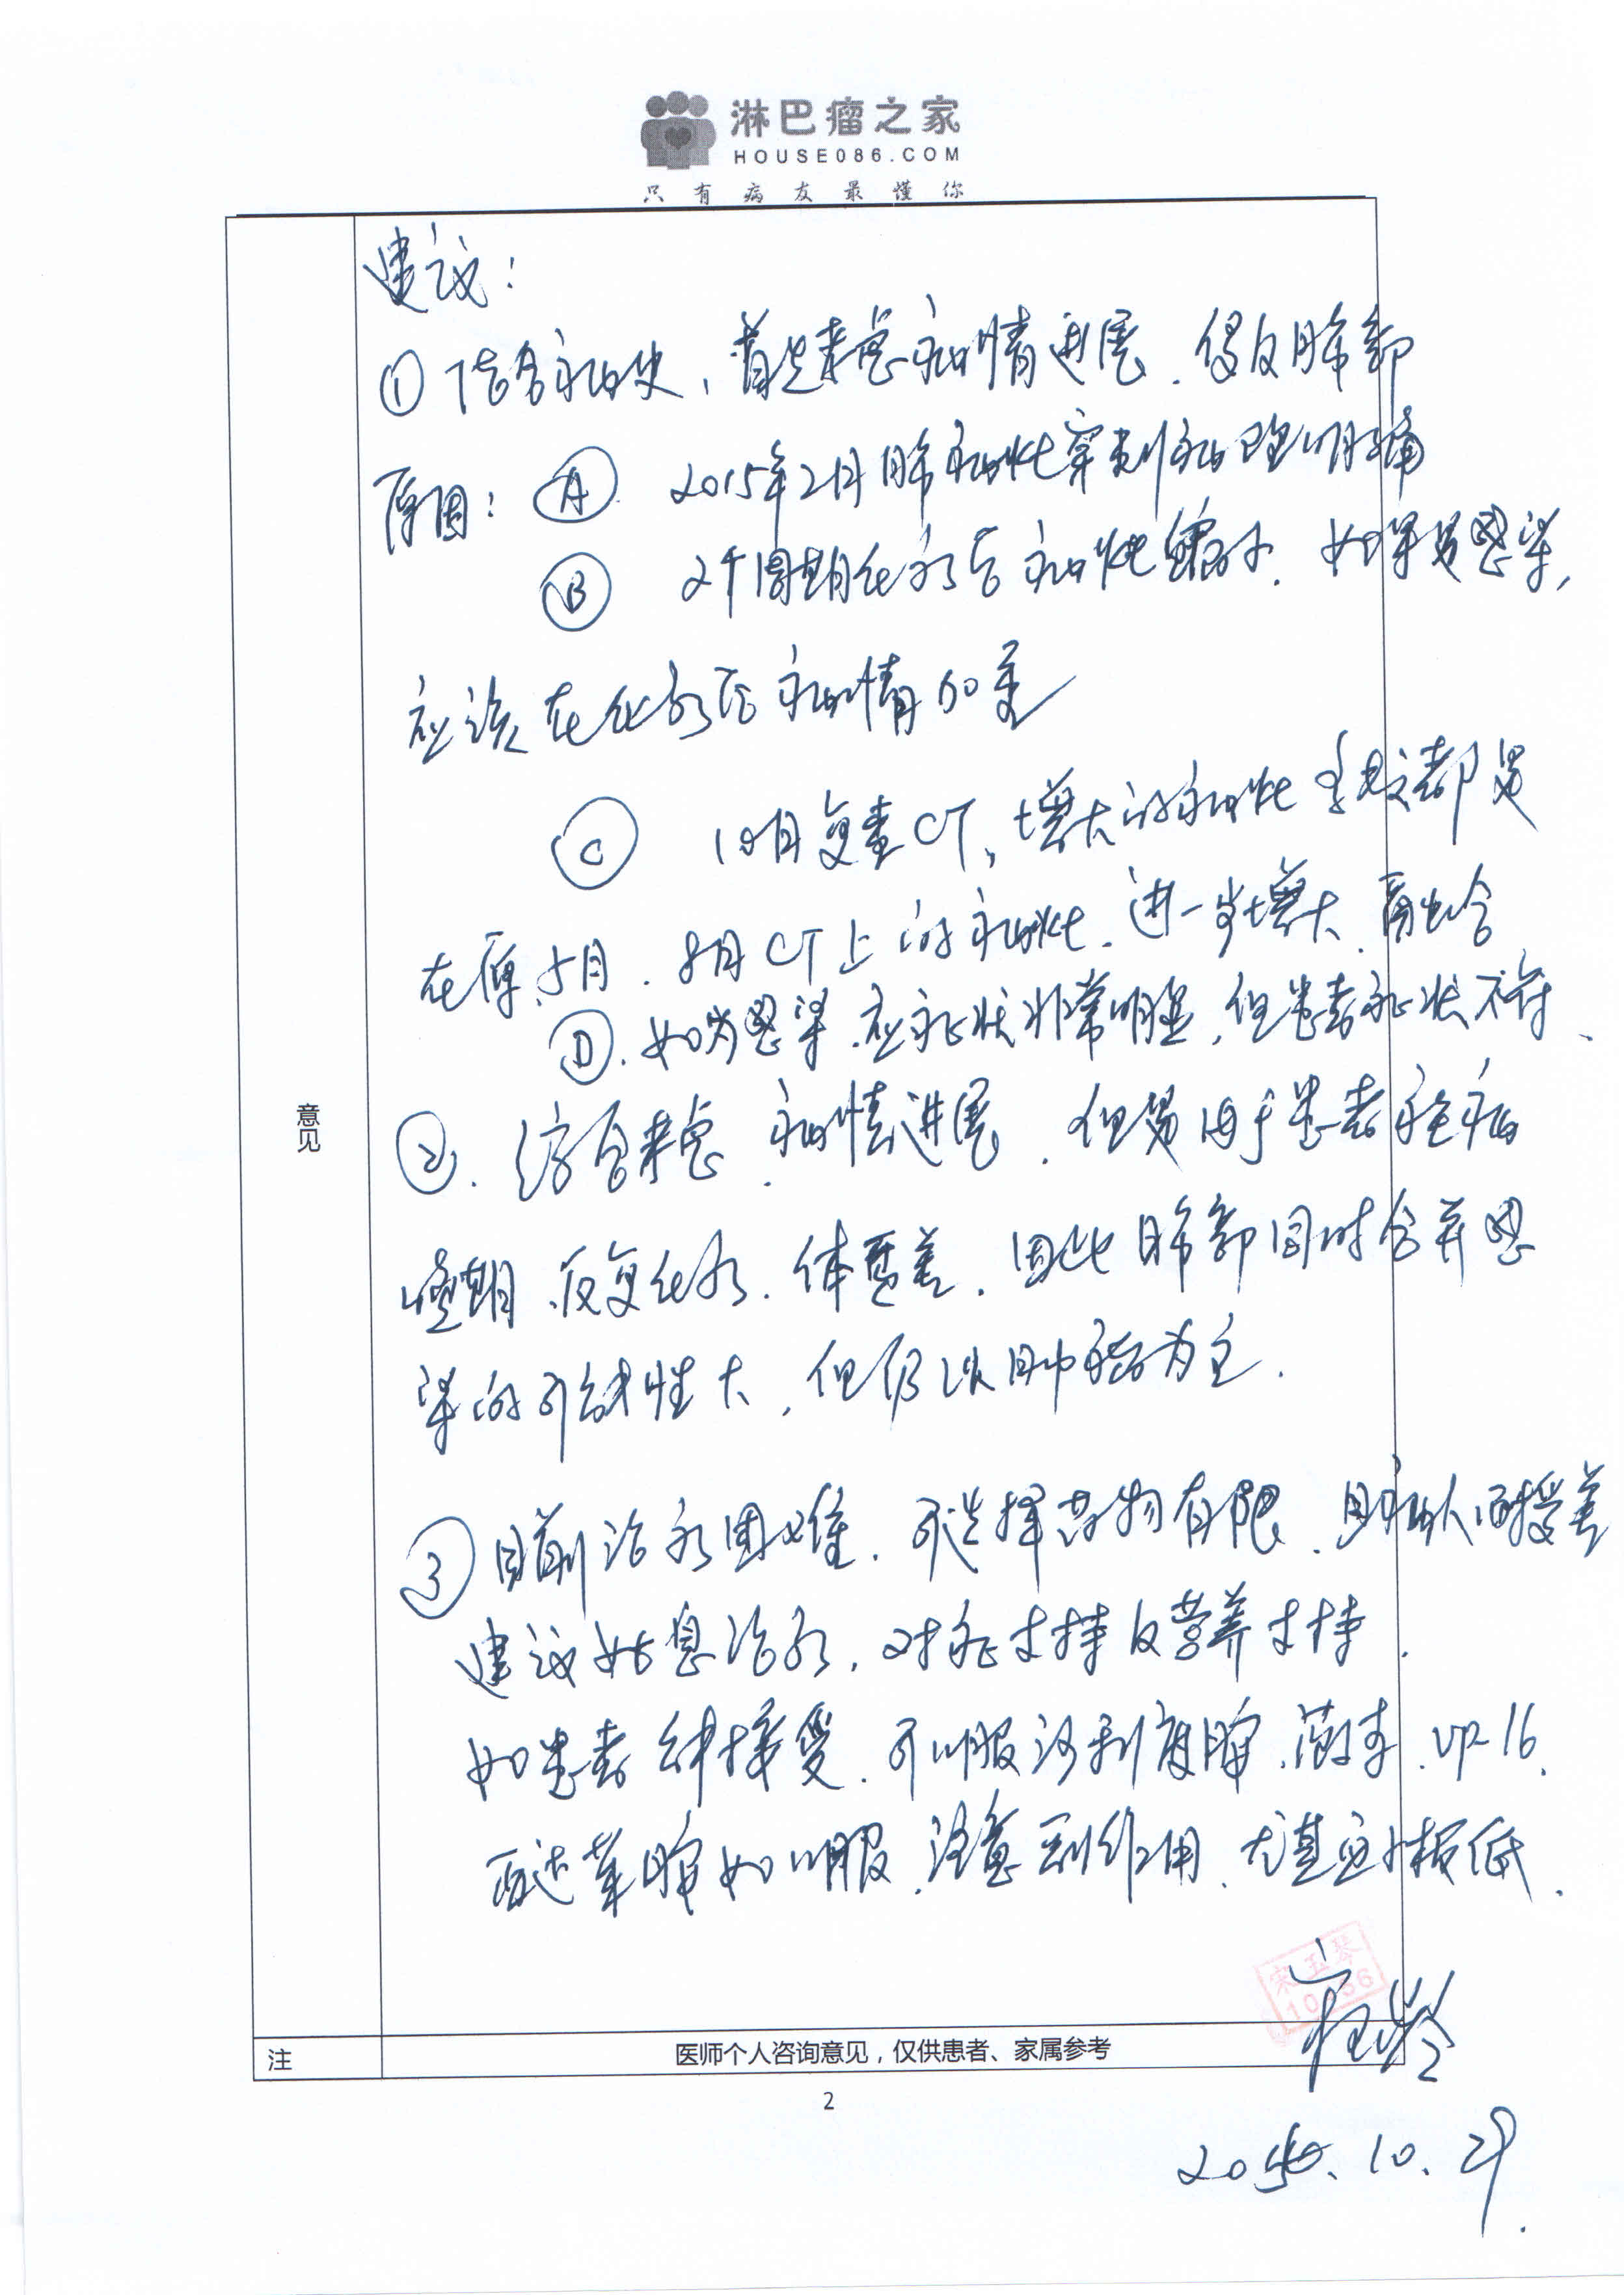 淋巴瘤之家
HOUSE086.COM
只有病友最懂你
建议：
① 结合病史，首先考虑病情进展，侵及肺部
原因： A 2015年2月肺病灶穿刺病理明确
B 2个周期化疗后病灶缩小，如果是感染，
应该在化疗后病情加重
C 10月复查CT，增大的病灶主要都是
在原5月、8月CT上的病灶，进一步增大、融合
D. 如为感染，应症状非常明显，但患者症状不符、
②. 综合考虑，病情进展，但是由于患者疾病
晚期、反复化疗、体质差，因此肺部同时合并感
染的可能性大，但仍以肿瘤为主.
③ 目前治疗困难，可选择药物有限，且病人耐受差
建议姑息治疗，对症支持及营养支持.
如患者能接受，可口服沙利度胺、激素、VP-16、
西达苯胺如口服，注意副作用、尤其血小板低.
意见
宋玉琴
注
医师个人咨询意见，仅供患者、家属参考
2
10.29.